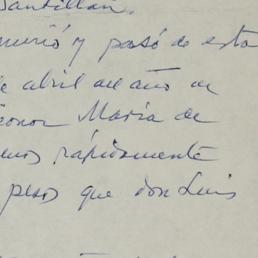 Santillán.
murió y pasó de esta
de abril del año de
Leonor María de
rápidamente
peso que don Luis